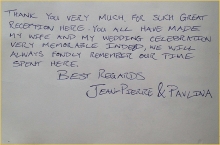 THANK YOU VERY MUCH FOR SUCH GREAT
RECEPTION HERE. YOU ALL HAVE MADE
MY WIFE AND MY WEDDING CELEBRATION
VERY MEMORABLE INDEED, WE WILL
ALWAYS FONDLY REMEMBER OUR TIME
SPENT HERE.
BEST REGARDS
JEAN-PIERRE & PAVLINA